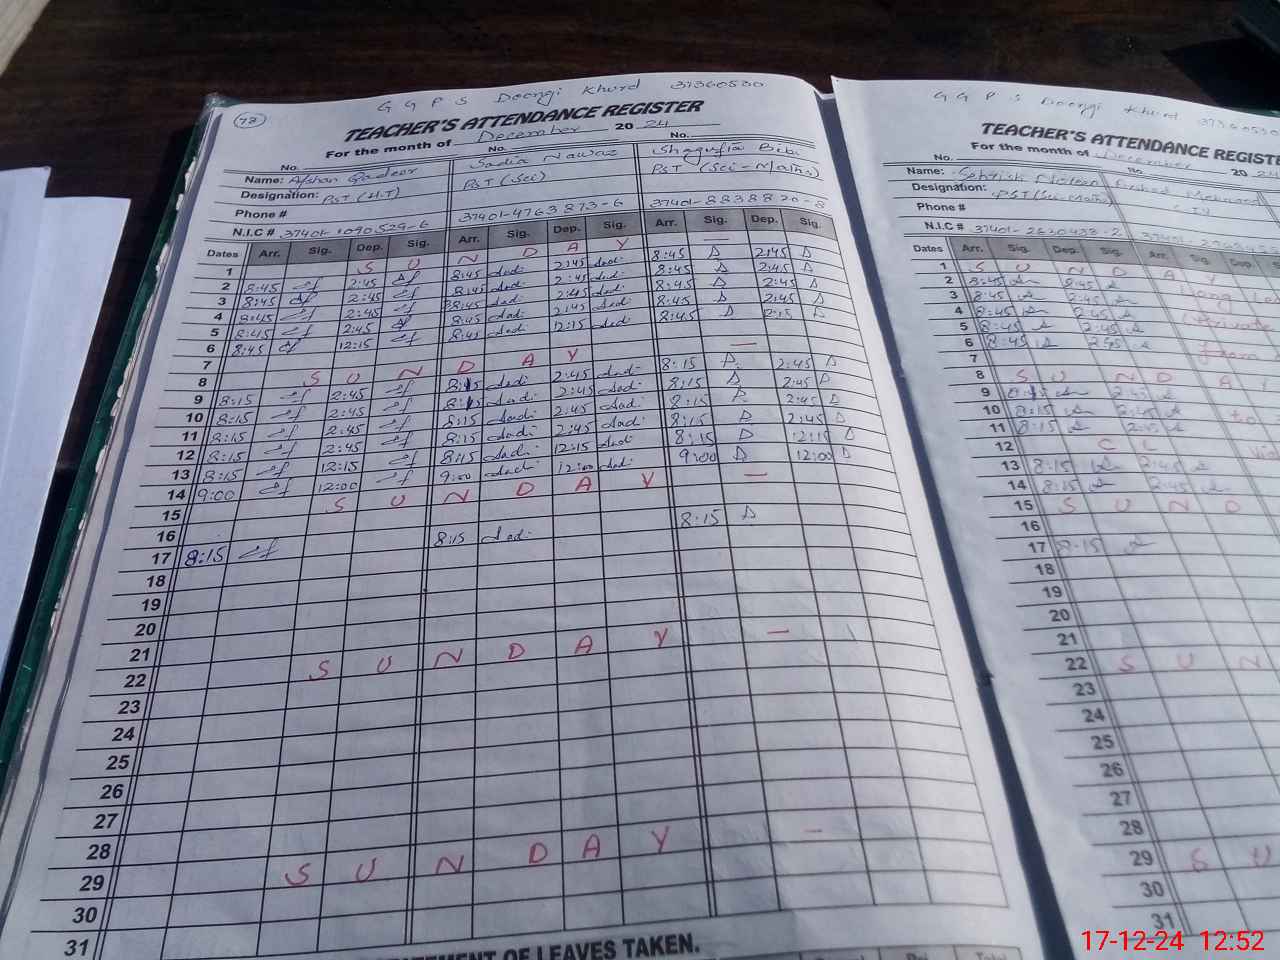 78
G G P S Doongi Khurd 37360530
TEACHER'S ATTENDANCE REGISTER
For the month of December 2024
No. No. No.
Name: Afshan Qadeer Sadia Nawaz Shagufta Bibi
Designation: PST (H.T) PST (Sci) PST (Sci-Maths)
Phone #
N.I.C # 37401-1090529-6 37401-4763873-6 37401-8838820-8
Dates Arr. Sig. Dep. Sig. Arr. Sig. Dep. Sig. Arr. Sig. Dep. Sig.
1 S U N D A Y —
2 8:45 2:45 8:45 Sad: 2:45 Sad: 8:45 2:45
3 8:45 2:45 8:45 Sad: 2:45 Sad: 8:45 2:45
4 8:45 2:45 8:45 Sad: 2:45 Sad: 8:45 2:45
5 8:45 2:45 8:45 Sad: 2:45 Sad: 8:45 2:45
6 8:45 12:15 8:45 Sad: 12:15 Sad: 8:45
7
8 S U N D A Y —
9 8:15 2:45 8:15 Sad: 2:45 Sad: 8:15 2:45
10 8:15 2:45 8:15 Sad: 2:45 Sad: 8:15 2:45
11 8:15 2:45 8:15 Sad: 2:45 Sad: 8:15 2:45
12 8:15 2:45 8:15 Sad: 2:45 Sad: 8:15 2:45
13 8:15 12:15 8:15 Sad: 12:15 Sad: 8:15 12:15
14 9:00 12:00 9:00 Sad: 12:00 Sad: 9:00 12:00
15 S U N D A Y —
16
17 8:15 8:15 Sad: 8:15
18
19
20
21
22 S U N D A Y —
23
24
25
26
27
28
29 S U N D A Y —
30
31
OF LEAVES TAKEN.
G G P S Doongi Khurd 37360530
TEACHER'S ATTENDANCE
For the month of December 2024
No. No.
Name:
Designation: PST (Sci-Maths)
Phone #
N.I.C #
Dates Arr. Sig. Dep. Sig. Arr. Sig. Dep.
1 S U N D A Y
2 8:45 2:45 Long
3 8:45 2:45
4 8:45 2:45
5 8:45 2:45
6 8:45 2:45 from
7
8 S U N D A Y
9 8:15 2:45
10 8:15 2:45 to
11 8:15 2:45
12 C L
13 8:15 2:45
14 8:15 2:45
15 S U N D
16
17 8:15
18
19
20
21
22 S U N
23
24
25
26
27
28
29 S U
30
31
17-12-24 12:52